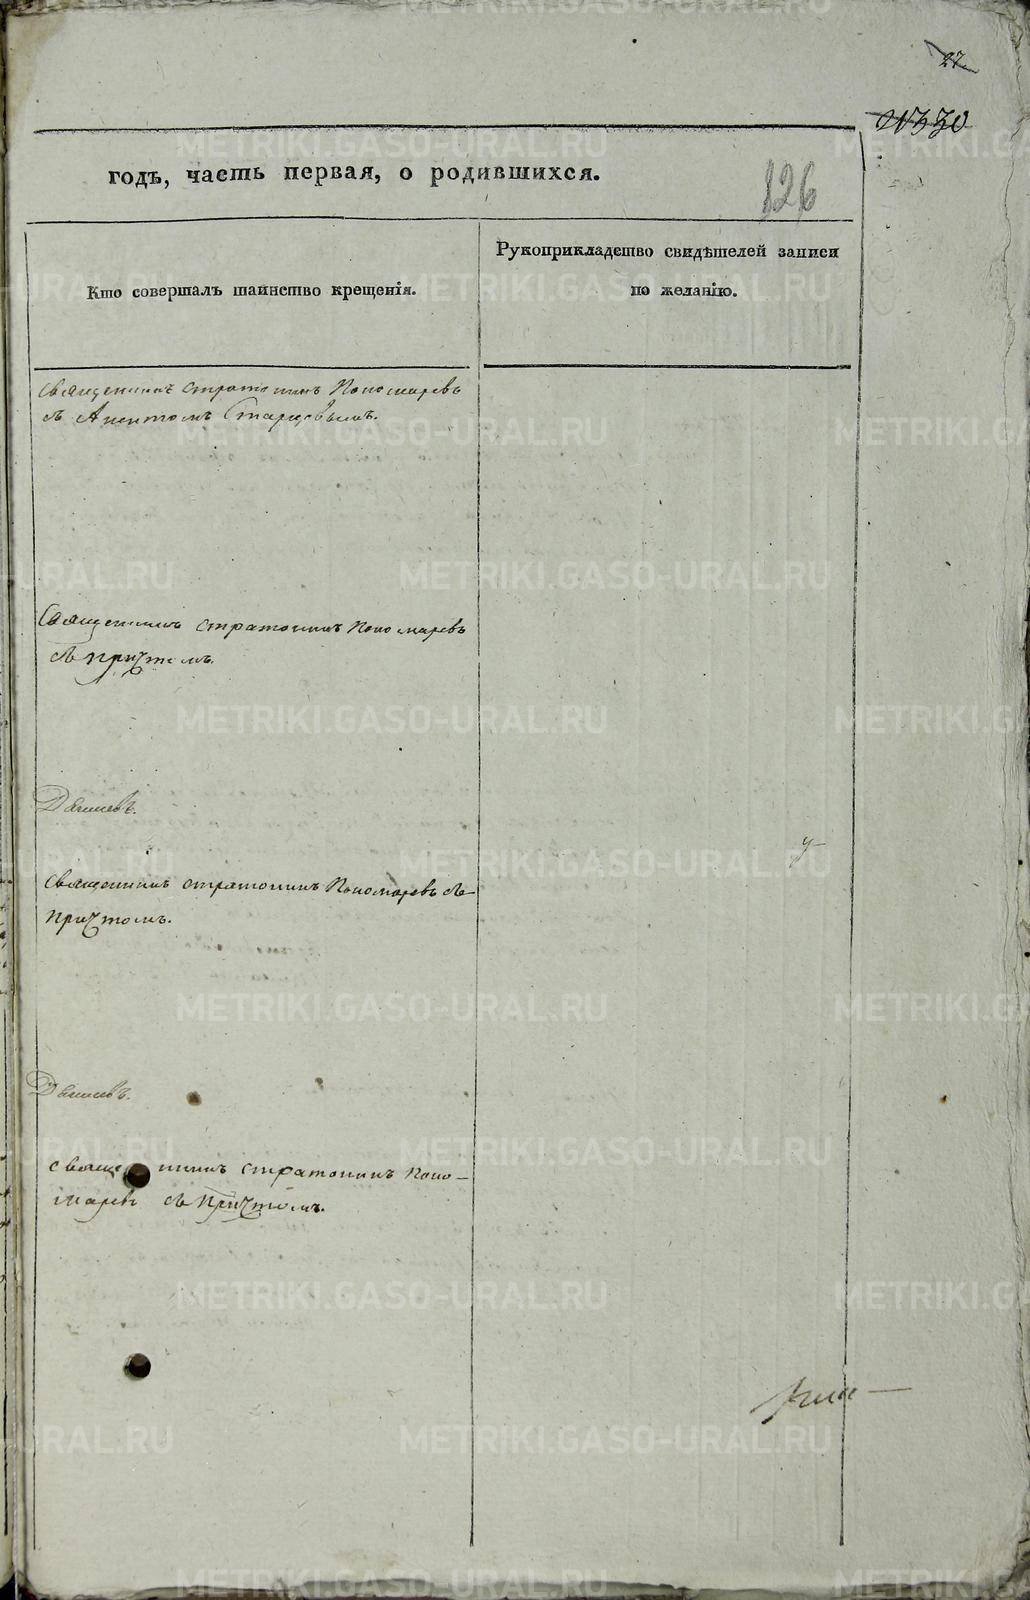 27
годъ, часть первая, о родившихся.
126
Кто совершалъ таинство крещенія.
Рукоприкладство свидѣтелей записи
по желанію.
Священникъ Стратоникъ Пономаревъ
съ Старцовымъ.
Священникъ Стратоникъ Пономаревъ
съ причтомъ.
Священникъ Стратоникъ Пономаревъ съ
причтомъ.
Священникъ Стратоникъ Поно-
маревъ съ причтомъ.
METRIKI.GASO-URAL.RU